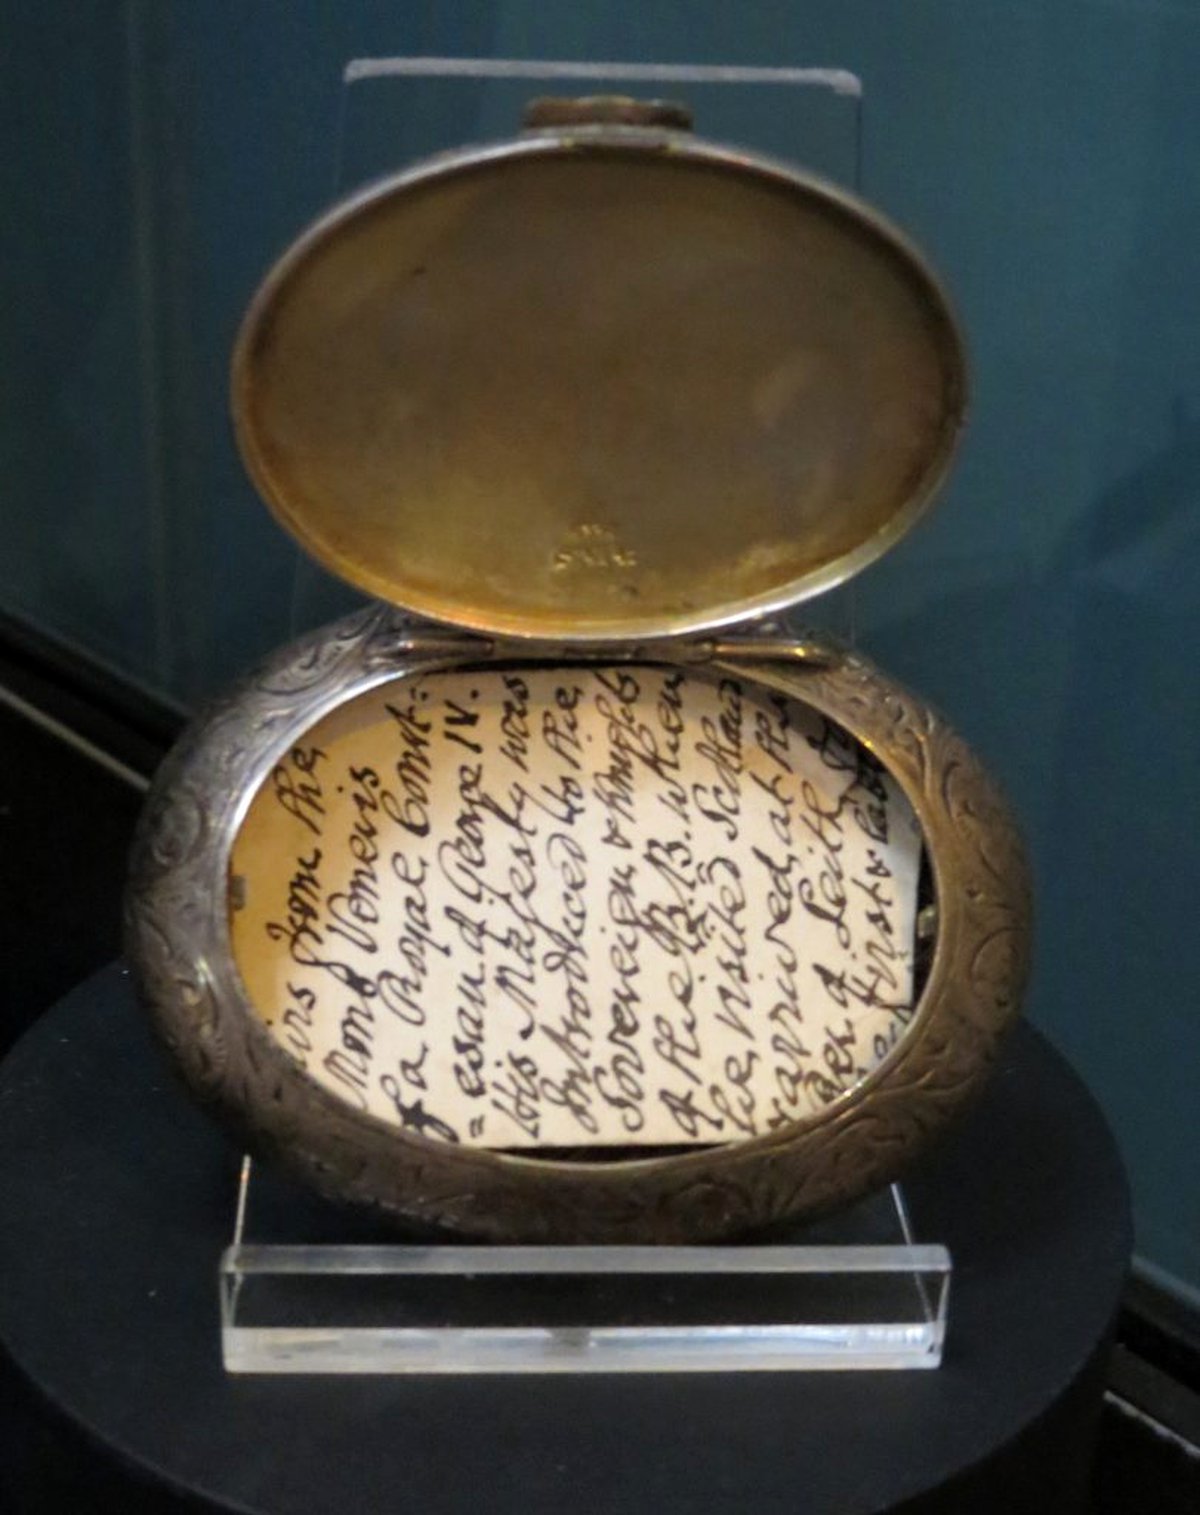 from the
Mons Veneris
of a Royal Court=
=esan of George IV.
His Majesty was
Introduced to the
Sovereign & Knights
of the B.B. when
he visited Scotland
& arrived at the
Pier of Leith
first